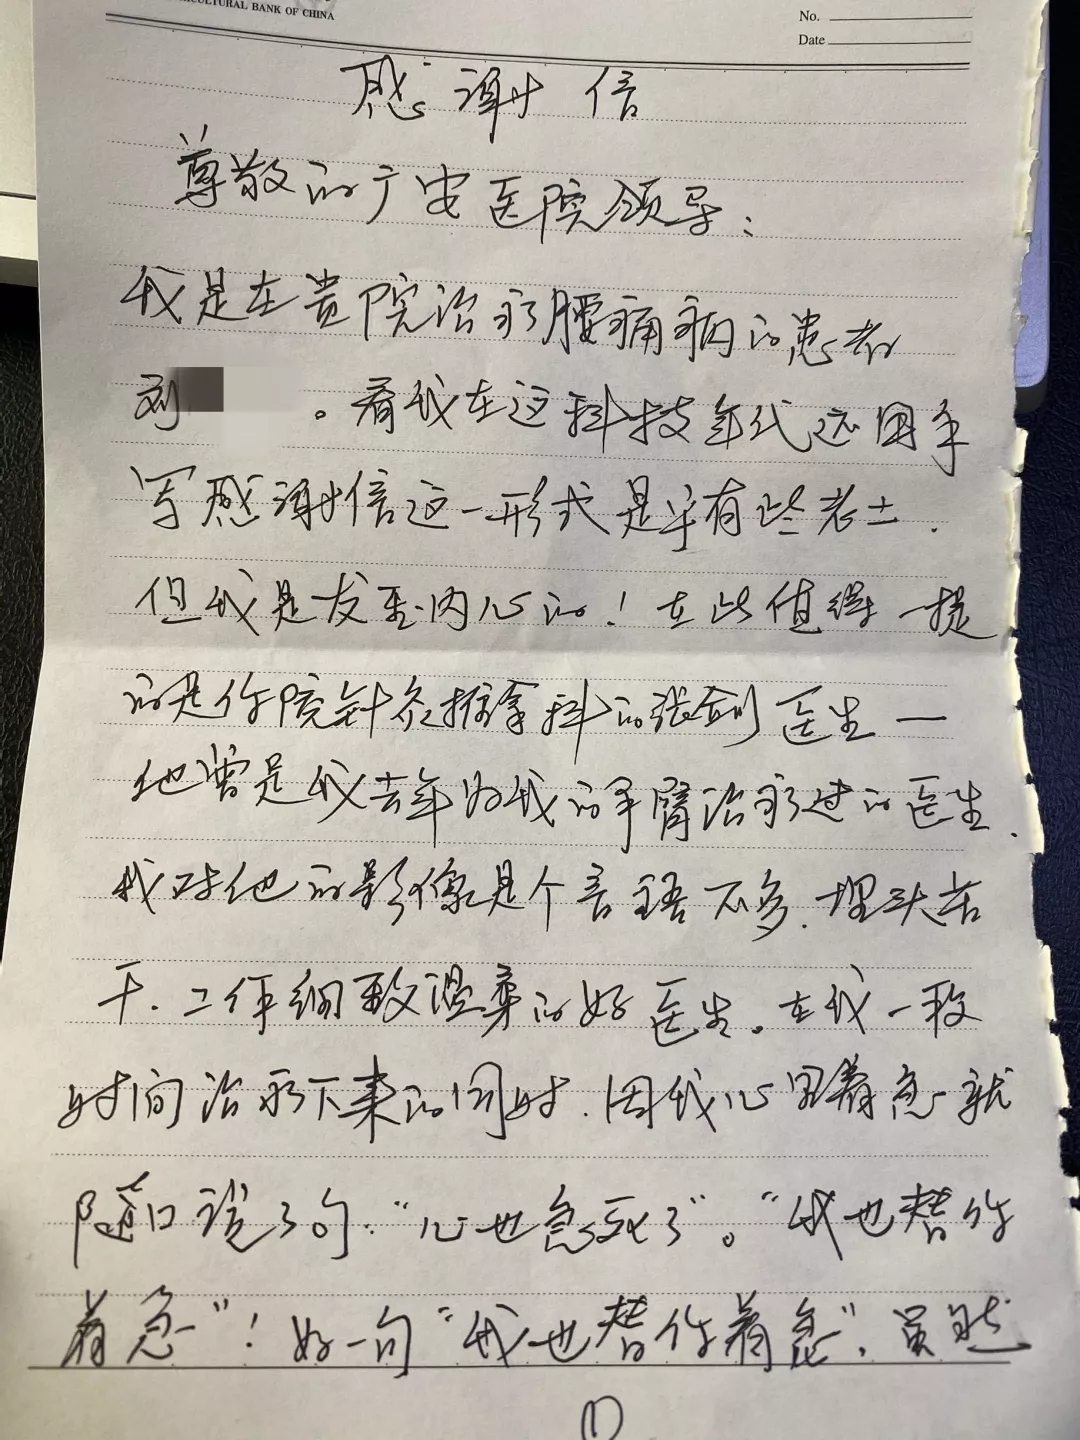 CULTURAL BANK OF CHINA
No.
Date
感谢信
尊敬的广安医院领导：
我是在贵院治疗腰痛病的患者
刘 。看我在这科技年代还用手
写感谢信这一形式是乎有些老土.
但我是发至内心的！在此值得一提
的是你院针灸推拿科的张剑医生一
他曾是我去年为我的手臂治疗过的医生.
我对他的影像是个言语不多.埋头苦
干.工作细致温柔的好医生。在我一段
时间治疗下来的同时.因我心里着急就
随口说了句："心也急死了"。"我也替你
着急"！好一句"我也替你着急"，虽然
(1)